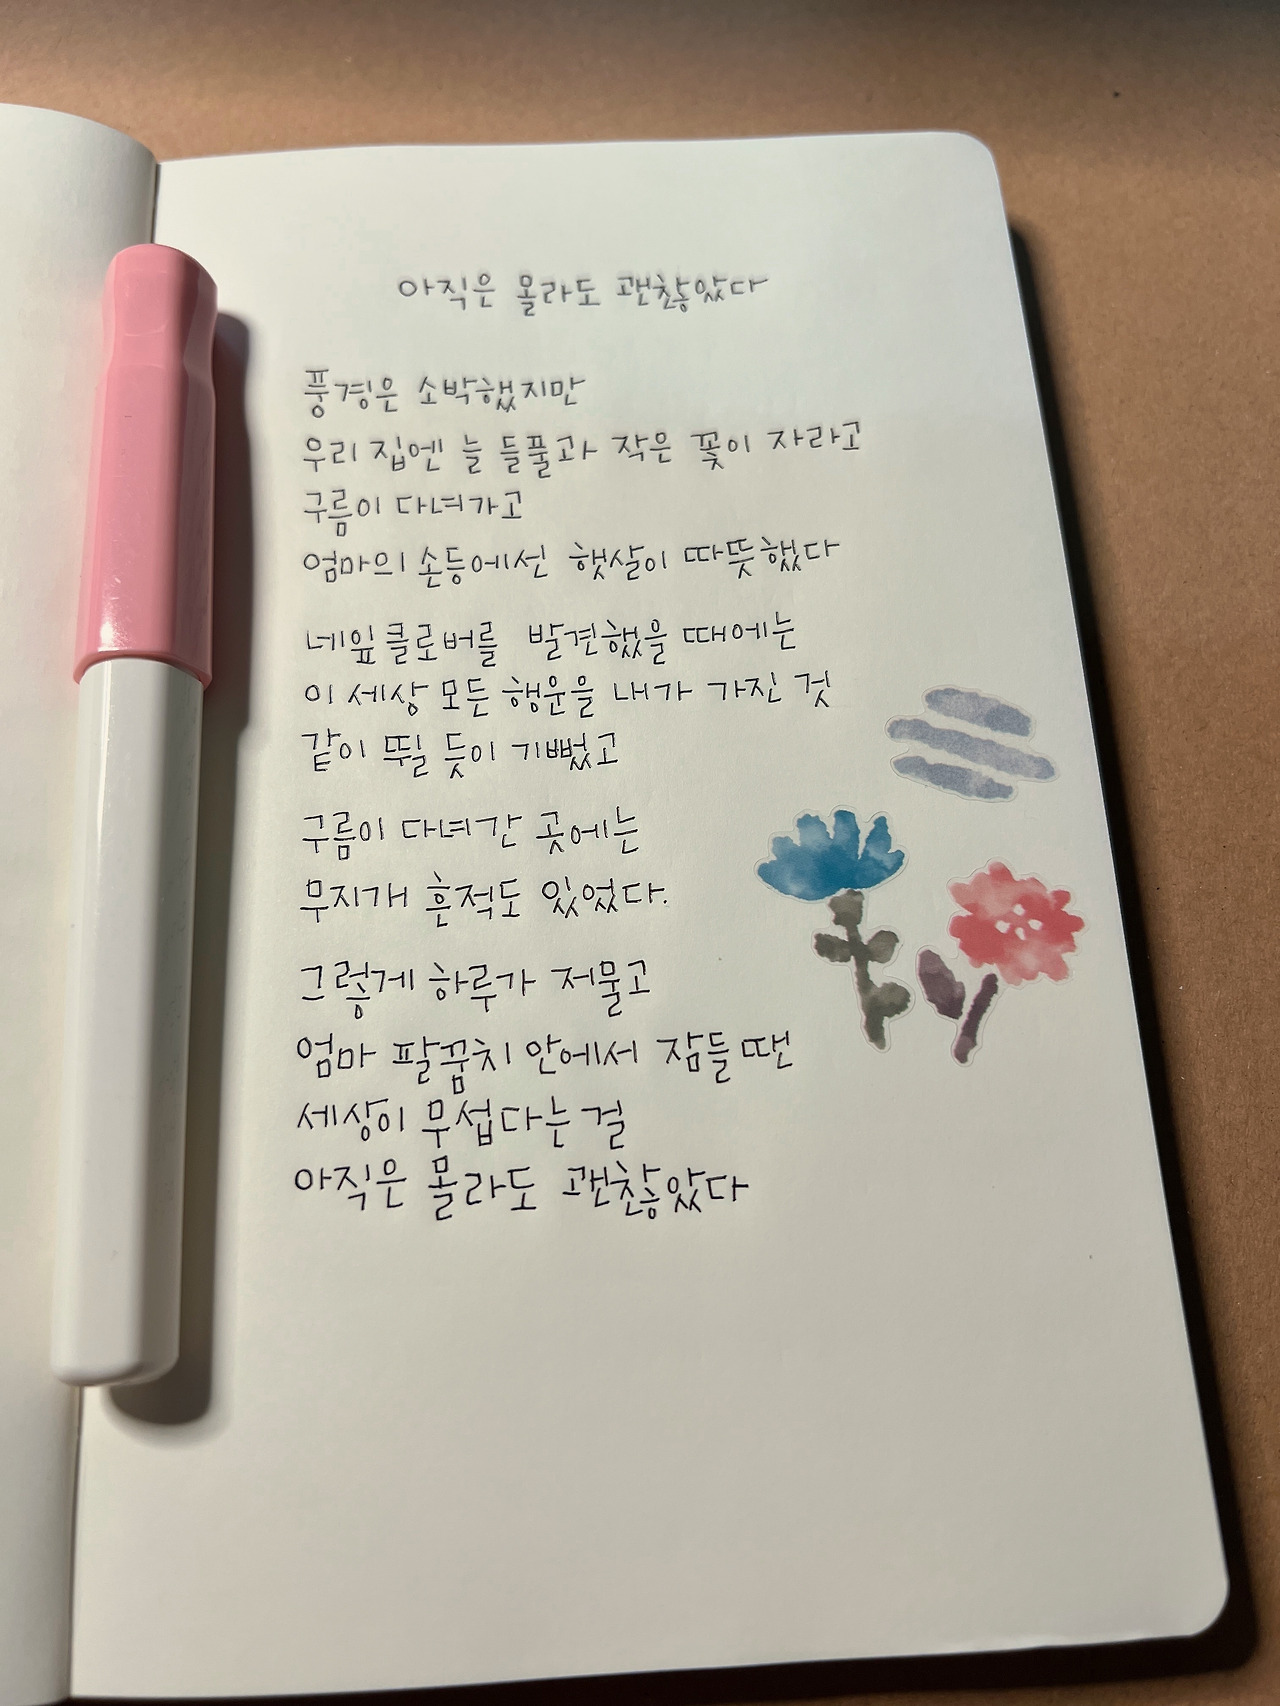 아직은 몰라도 괜찮았다
풍경은 소박했지만
우리 집엔 늘 들풀과 작은 꽃이 자라고
구름이 다녀가고
엄마의 손등에선 햇살이 따뜻했다
네잎클로버를 발견했을 때에는
이 세상 모든 행운을 내가 가진 것
같이 뛸 듯이 기뻤고
구름이 다녀간 곳에는
무지개 흔적도 있었다.
그렇게 하루가 저물고
엄마 팔꿈치 안에서 잠들 땐
세상이 무섭다는 걸
아직은 몰라도 괜찮았다